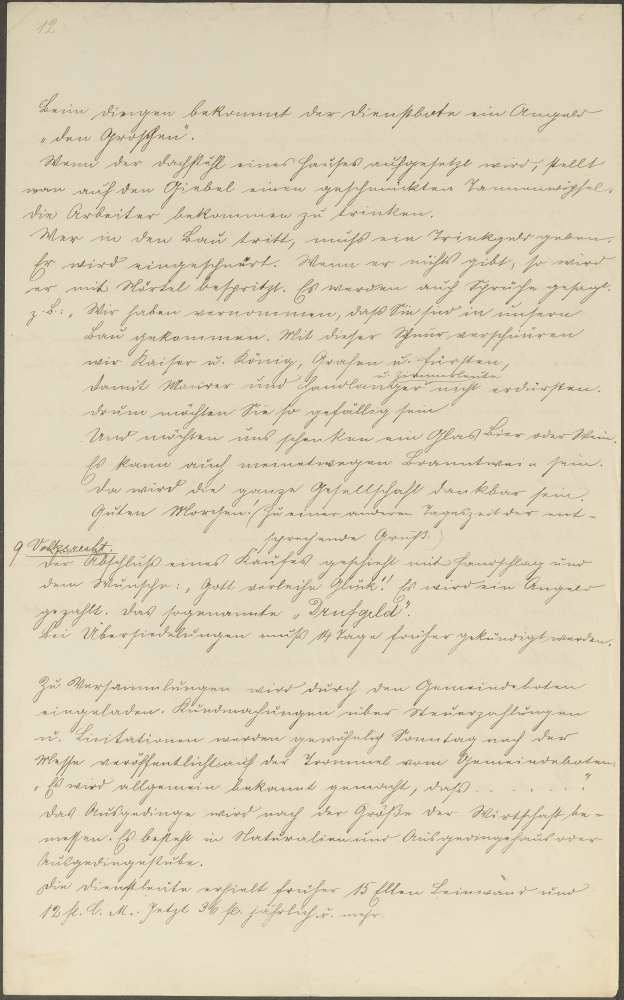 12
Beim dingen bekommt der Dienstbote ein Angeld
"den Groschen".
Wenn der Dachstuhl eines Hauses aufgesetzt wird, stellt
man auf den Giebel einen geschmückten Tannenwipfel.
Die Arbeiter bekommen zu trinken.
Wer in den Bau tritt, muß ein Trinkgeld geben.
Er wird eingeschnürt. Wenn er nichts gibt, so wird
er mit Mörtel bespritzt. Es werden auch Sprüche gesagt.
z. B.: „Wir haben vernommen, daß Sie sind in unsern
Bau gekommen. Mit dieser Schnur verschnüren
wir Kaiser u. König, Grafen u. Fürsten,
u. Zimmerleute
damit Maurer und Handlanger nicht erdürsten.
Drum möchten Sie so gefällig sein
Und möchten uns schenken ein Glas Bier oder Wein.
Es kann auch meinetwegen Branntwein sein.
Da wird die ganze Gesellschaft dankbar sein.
Guten Morchen! (Zu einer anderen Tageszeit der ent-
sprechende Gruß.)
9 Volksrecht.
Der Abschluß eines Kaufes geschieht mit Handschlag und
dem Wunsche: „Gott verleihe Glück"! Es wird ein Angeld
gezahlt. Das sogenannte „Drufgeld".
Bei Übersiedelungen muß 14 Tage früher gekündigt werden.
Zu Versammlungen wird durch den Gemeindeboten
eingeladen. Kundmachungen über Steuerzahlungen
u. Licitationen werden gewöhnlich Sonntag nach der
Messe veröffentlicht auf der Trommel vom Gemeindeboten.
„Es wird allgemein bekannt gemacht, daß . . . . . . "
Das Ausgedinge wird nach der Größe der Wirtschaft be-
messen. Es besteht in Naturalien und Ausgedingehaus oder
Ausgedingestube.
Die Dienstleute erhielt früher 15 Ellen Leinwand und
12 fl. C. M.. Jetzt 36 fl. jährlich u. mehr.